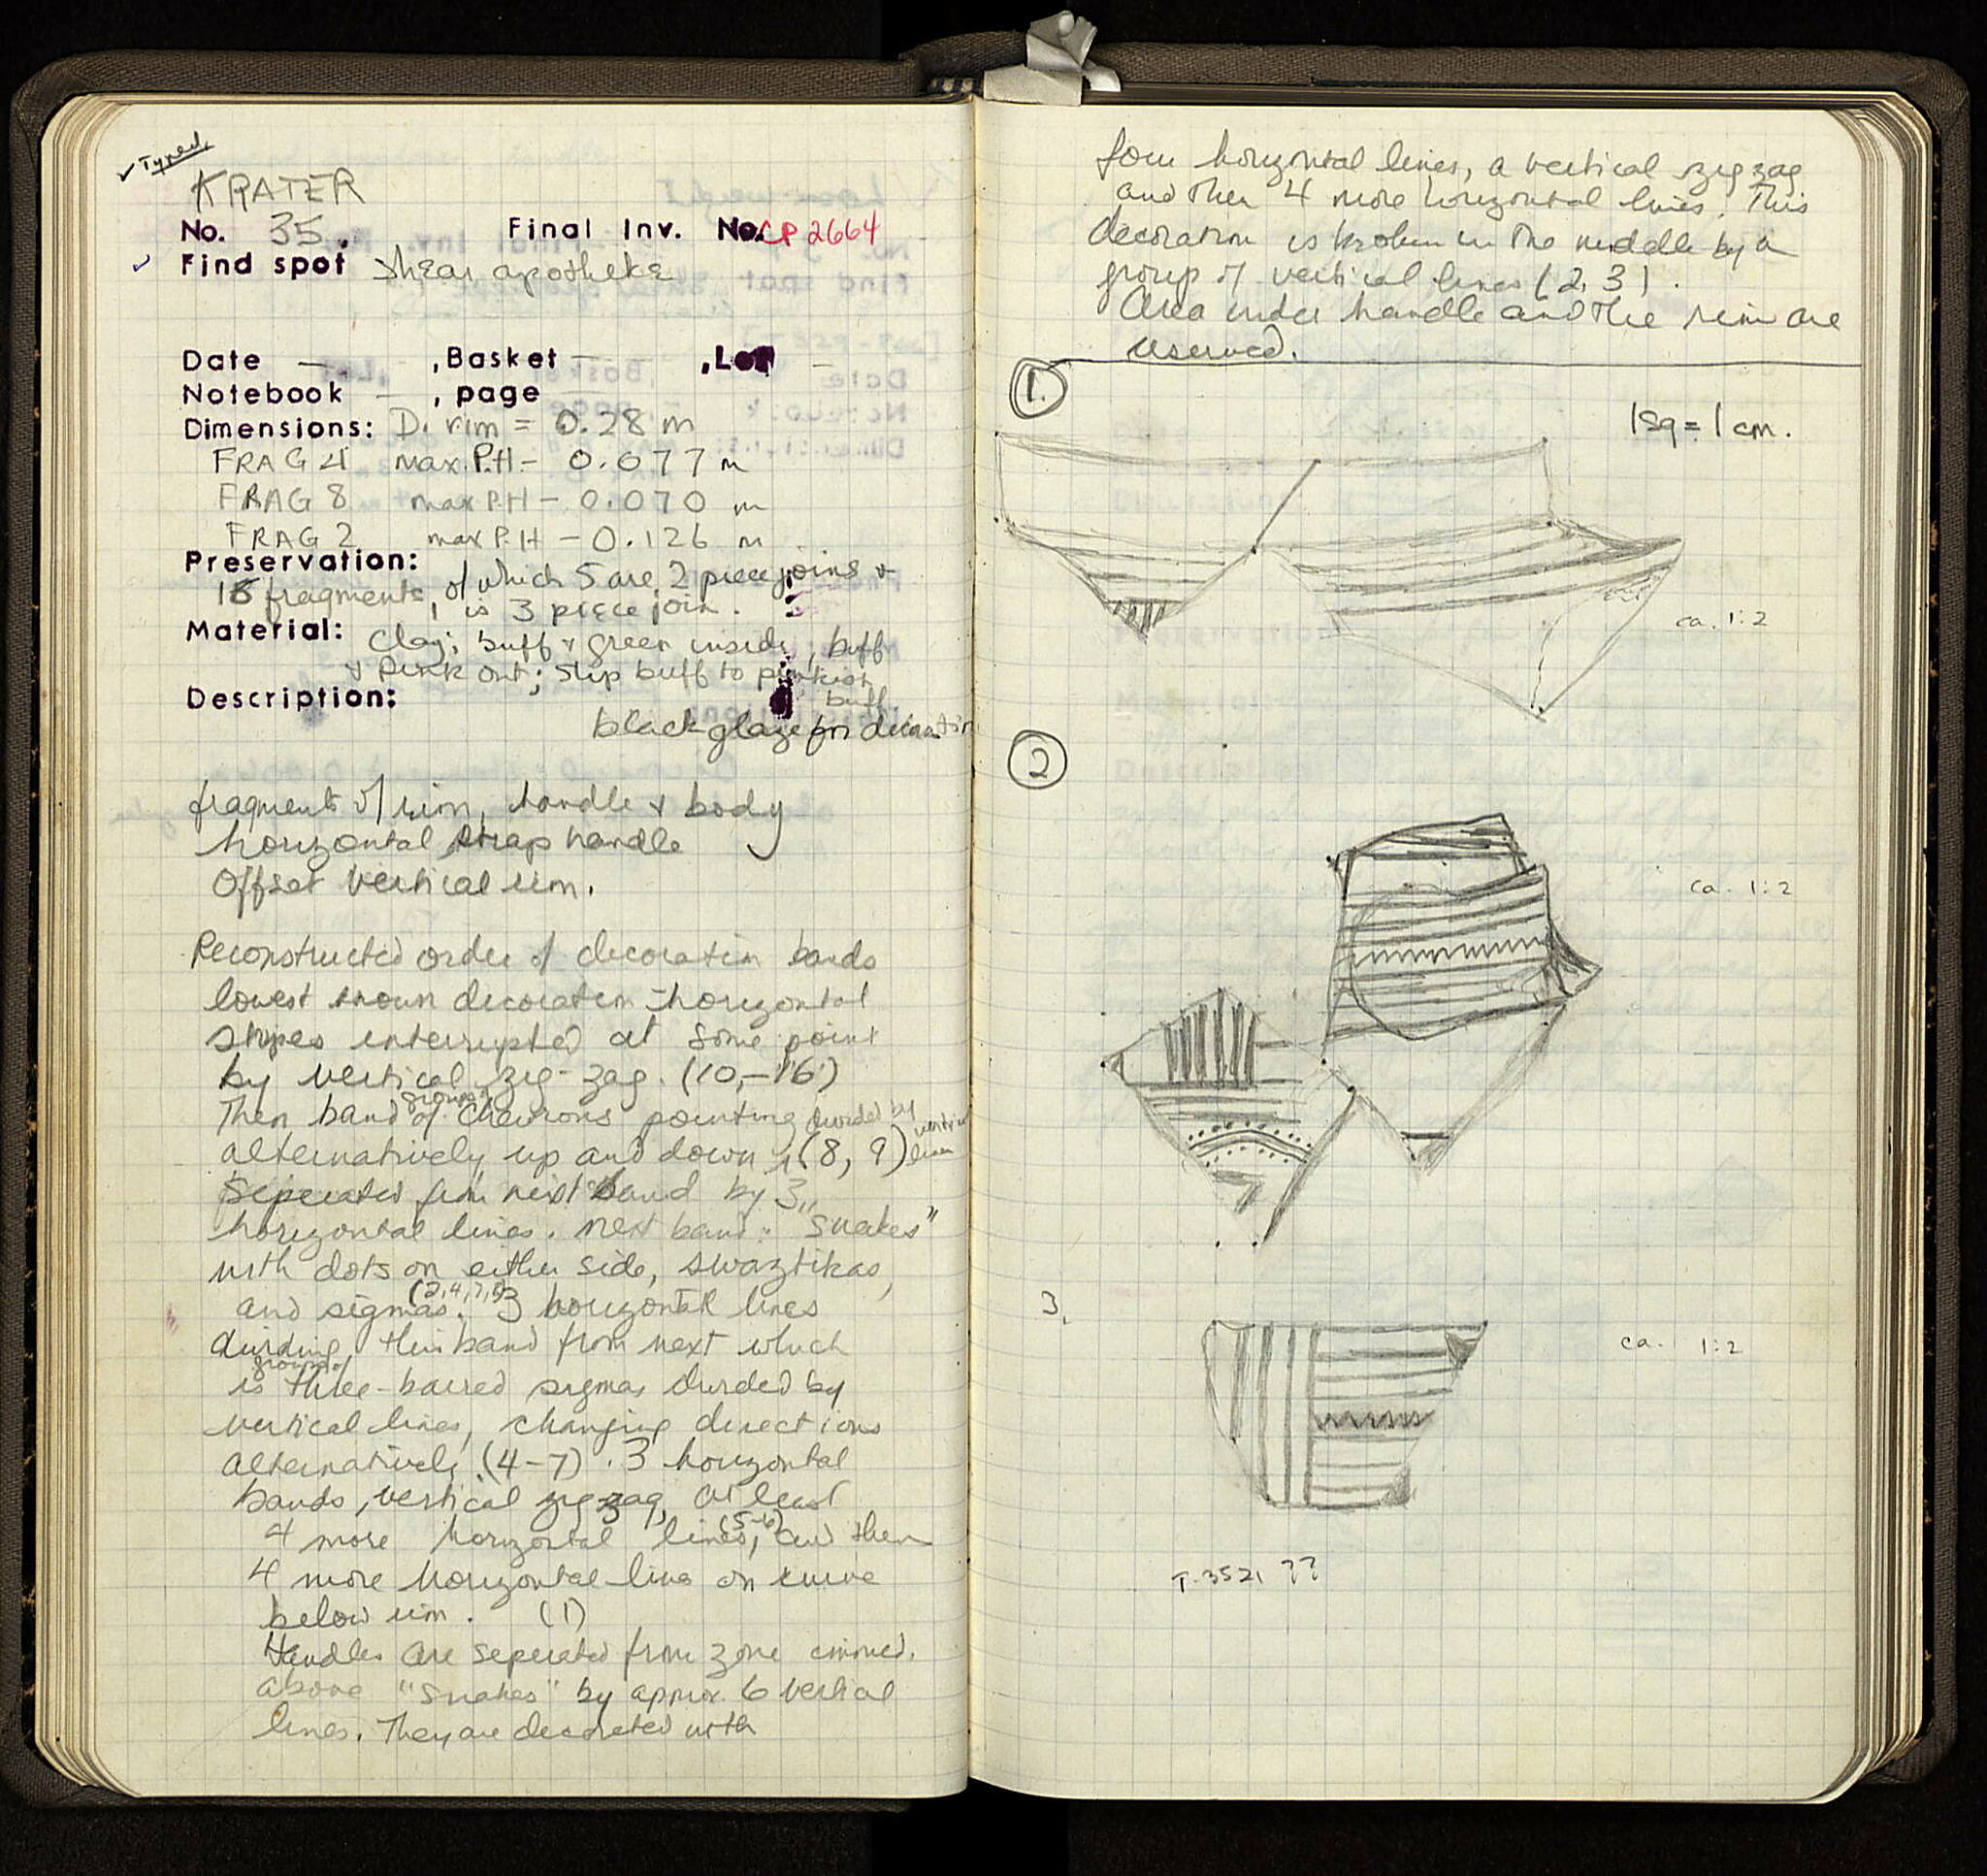 ✓ Typed
KRATER
No. 35. Final Inv. No. CP 2664
✓ Find spot Shear apotheke
Date — , Basket — , Lot —
Notebook — , page
Dimensions: D. rim = 0.28 m
FRAG 4 max. P.H - 0.077 m
FRAG 8 max P.H - 0.070 m
FRAG 2 max P.H - 0.126 m
Preservation:
fragments, of which 5 are 2 piece joins +
1 is 3 piece join.
Material: Clay: buff + green inside, buff
+ Pink out; slip buff to pinkish
buff
Description:
black glaze for decoration
fragments of rim, handle + body
horizontal strap handle
Offset vertical rim.
Reconstructed order of decoration bands
lowest known decoration - horizontal
stripes interrupted at some point
by vertical zig-zag. (10,-16)
Then band groups of chevrons pointing divided by
alternatively up and down (8, 9) vertical lines
Seperated from next band by 3
horizontal lines. next band: "snakes"
with dots on either side, swaztikas,
and sigmas. (2,4,7,8) 3 horizontal lines
dividing this band from next which
is groups of three-barred sigmas divided by
vertical lines, changing directions
alternatively (4-7). 3 horizontal
bands, vertical zig zag, at least
4 more horizontal lines, (5-6) and then
4 more horizontal lines on curve
below rim. (1)
Handles are seperated from zone
above "snakes" by approx. 6 vertical
lines. They are decorated with
four horizontal lines, a vertical zig zag
and then 4 more horizontal lines. This
decoration is broken in the middle by a
group of vertical lines (2, 3).
Area under handle and the rim are
reserved.
1.
1 sq = 1 cm.
ca. 1:2
2
ca. 1:2
3.
ca. 1:2
T. 3521 ??